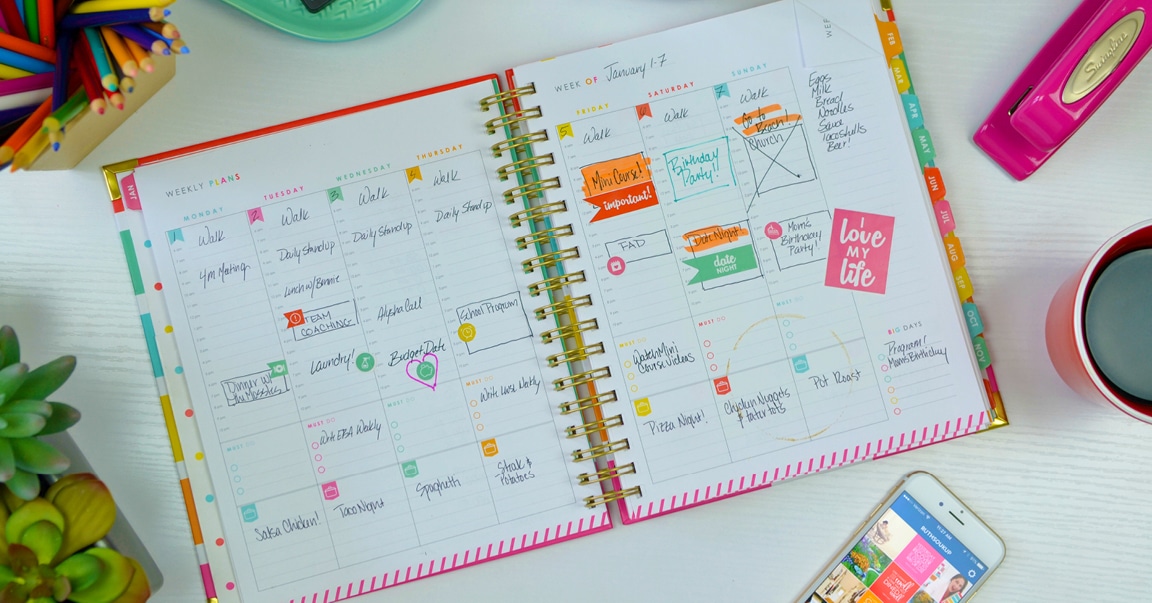 WEEKLY PLANS
MONDAY
1
Walk
4pm Meeting
Dinner w/
MUST DO
Salsa Chicken!
TUESDAY
2
Walk
Daily Standup
Lunch w/
TEAM
COACHING
Laundry!
MUST DO
Weekly
Taco Night
WEDNESDAY
3
Walk
Daily Standup
Alysha Call
Budget Date
MUST DO
Spaghetti
THURSDAY
4
Walk
Daily Standup
School Program
MUST DO
Weekly
Steak &
Potatoes
WEEK OF January 1-7
FRIDAY
5
Walk
Mini Course!
important!
FAD
MUST DO
Watch Mini
Course Videos
Pizza Night!
SATURDAY
Walk
Birthday
Party!!
Date Night!
date
NIGHT
MUST DO
Chicken Nuggets
& tater tots
SUNDAY
7
Walk
Go to
Beach!
Church
Mom's
Birthday
Party!
MUST DO
Pot Roast
WEE
Eggs
Milk
Bread
Noodles
Taco shells
Beer!
i
love
MY
life
BIG DAYS
Program!
Mom's Birthday
JAN
FEB
MAR
APR
MAY
JUN
JUL
AUG
SEP
OCT
NOV
Sunshine
RUTHSOUKUP